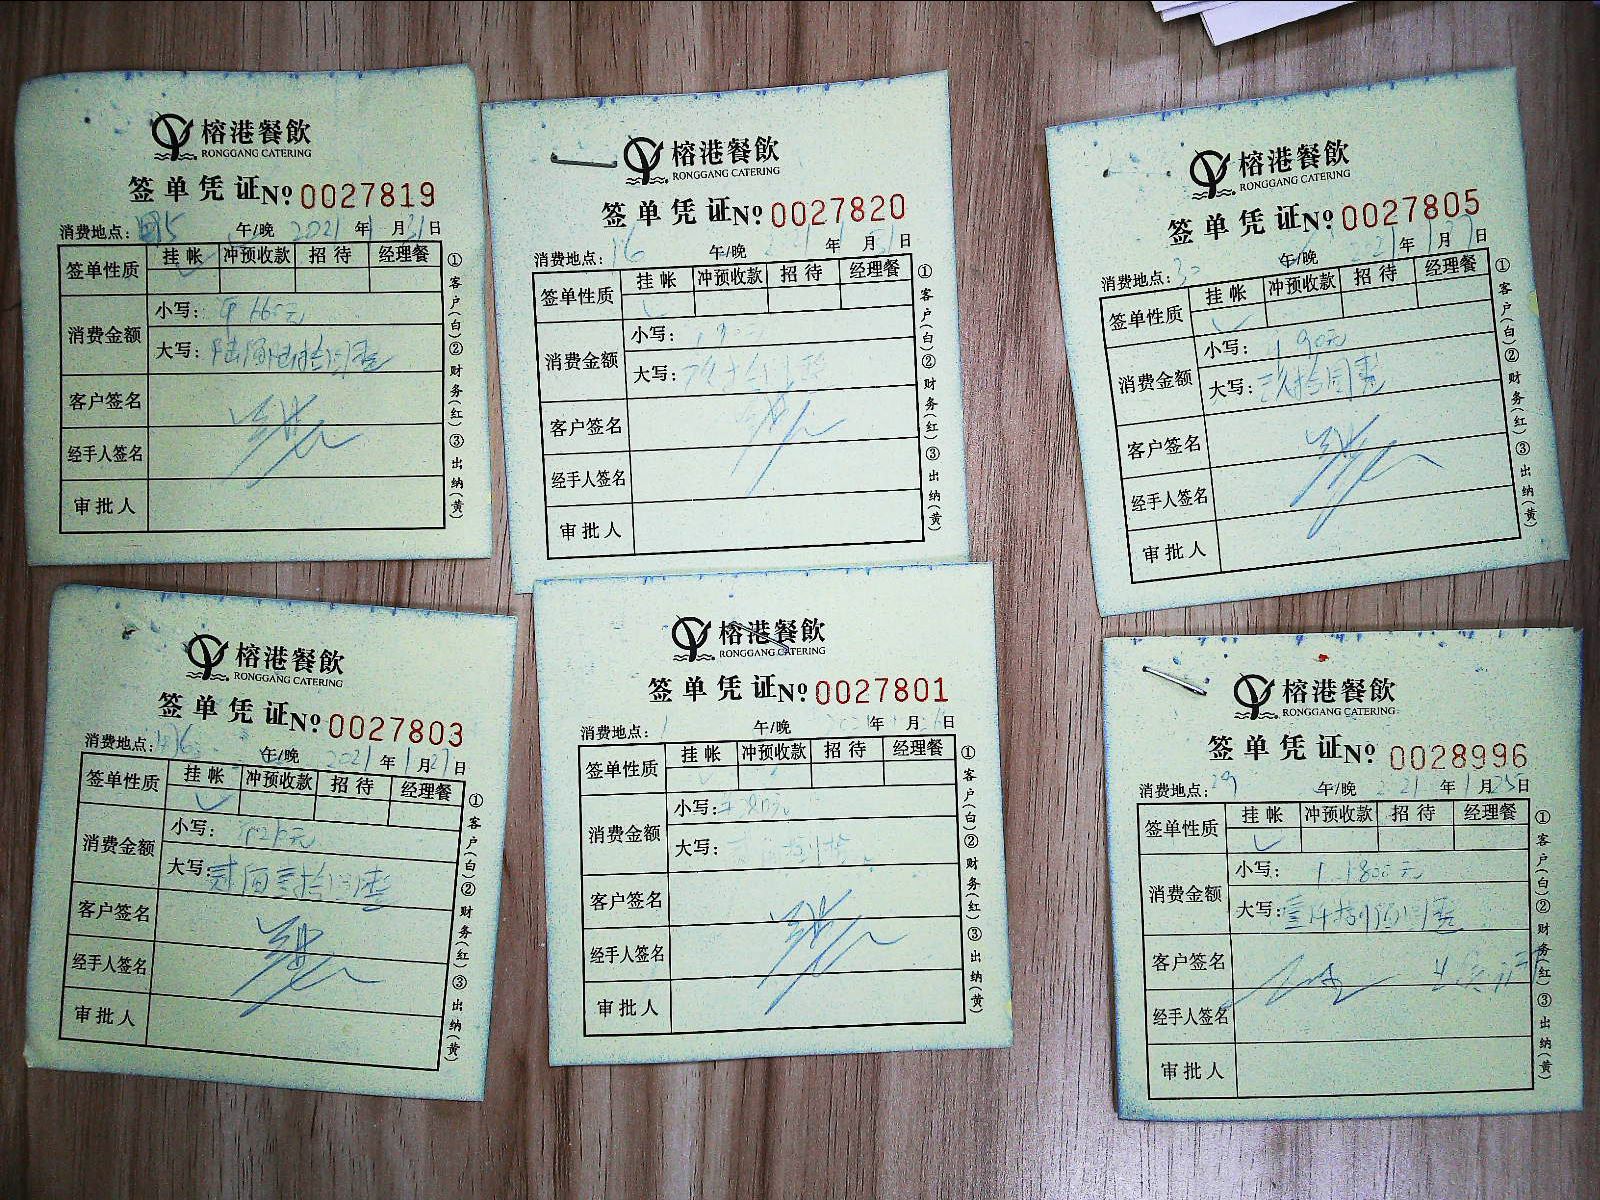 榕港餐飲
RONGGANG CATERING
签单凭证 Nº 0027819
消费地点: 午/晚 2021 年 1 月 31 日
签单性质 挂帐 冲预收款 招待 经理餐
消费金额 小写: 660元
大写: 陆佰陆拾圆整
客户签名
经手人签名
审批人
①客户(白)②财务(红)③出纳(黄)
榕港餐飲
RONGGANG CATERING
签单凭证 Nº 0027820
消费地点: 16 午/晚 2021 年 月 日
签单性质 挂帐 冲预收款 招待 经理餐
消费金额 小写: 90元
大写:
客户签名
经手人签名
审批人
①客户(白)②财务(红)③出纳(黄)
榕港餐飲
RONGGANG CATERING
签单凭证 Nº 0027805
消费地点: 午/晚 2021 年 1 月 日
签单性质 挂帐 冲预收款 招待 经理餐
消费金额 小写: 90元
大写: 玖拾圆整
客户签名
经手人签名
审批人
①客户(白)②财务(红)③出纳(黄)
榕港餐飲
RONGGANG CATERING
签单凭证 Nº 0027803
消费地点: 午/晚 2021 年 1 月 27 日
签单性质 挂帐 冲预收款 招待 经理餐
消费金额 小写: 元
大写: 贰佰壹拾圆整
客户签名
经手人签名
审批人
①客户(白)②财务(红)③出纳(黄)
榕港餐飲
RONGGANG CATERING
签单凭证 Nº 0027801
消费地点: 午/晚 年 月 日
签单性质 挂帐 冲预收款 招待 经理餐
消费金额 小写:
大写:
客户签名
经手人签名
审批人
①客户(白)②财务(红)③出纳(黄)
榕港餐飲
RONGGANG CATERING
签单凭证 Nº 0028996
消费地点: 29 午/晚 2021 年 1 月 25 日
签单性质 挂帐 冲预收款 招待 经理餐
消费金额 小写: 1800元
大写: 壹仟捌佰圆整
客户签名
经手人签名
审批人
①客户(白)②财务(红)③出纳(黄)